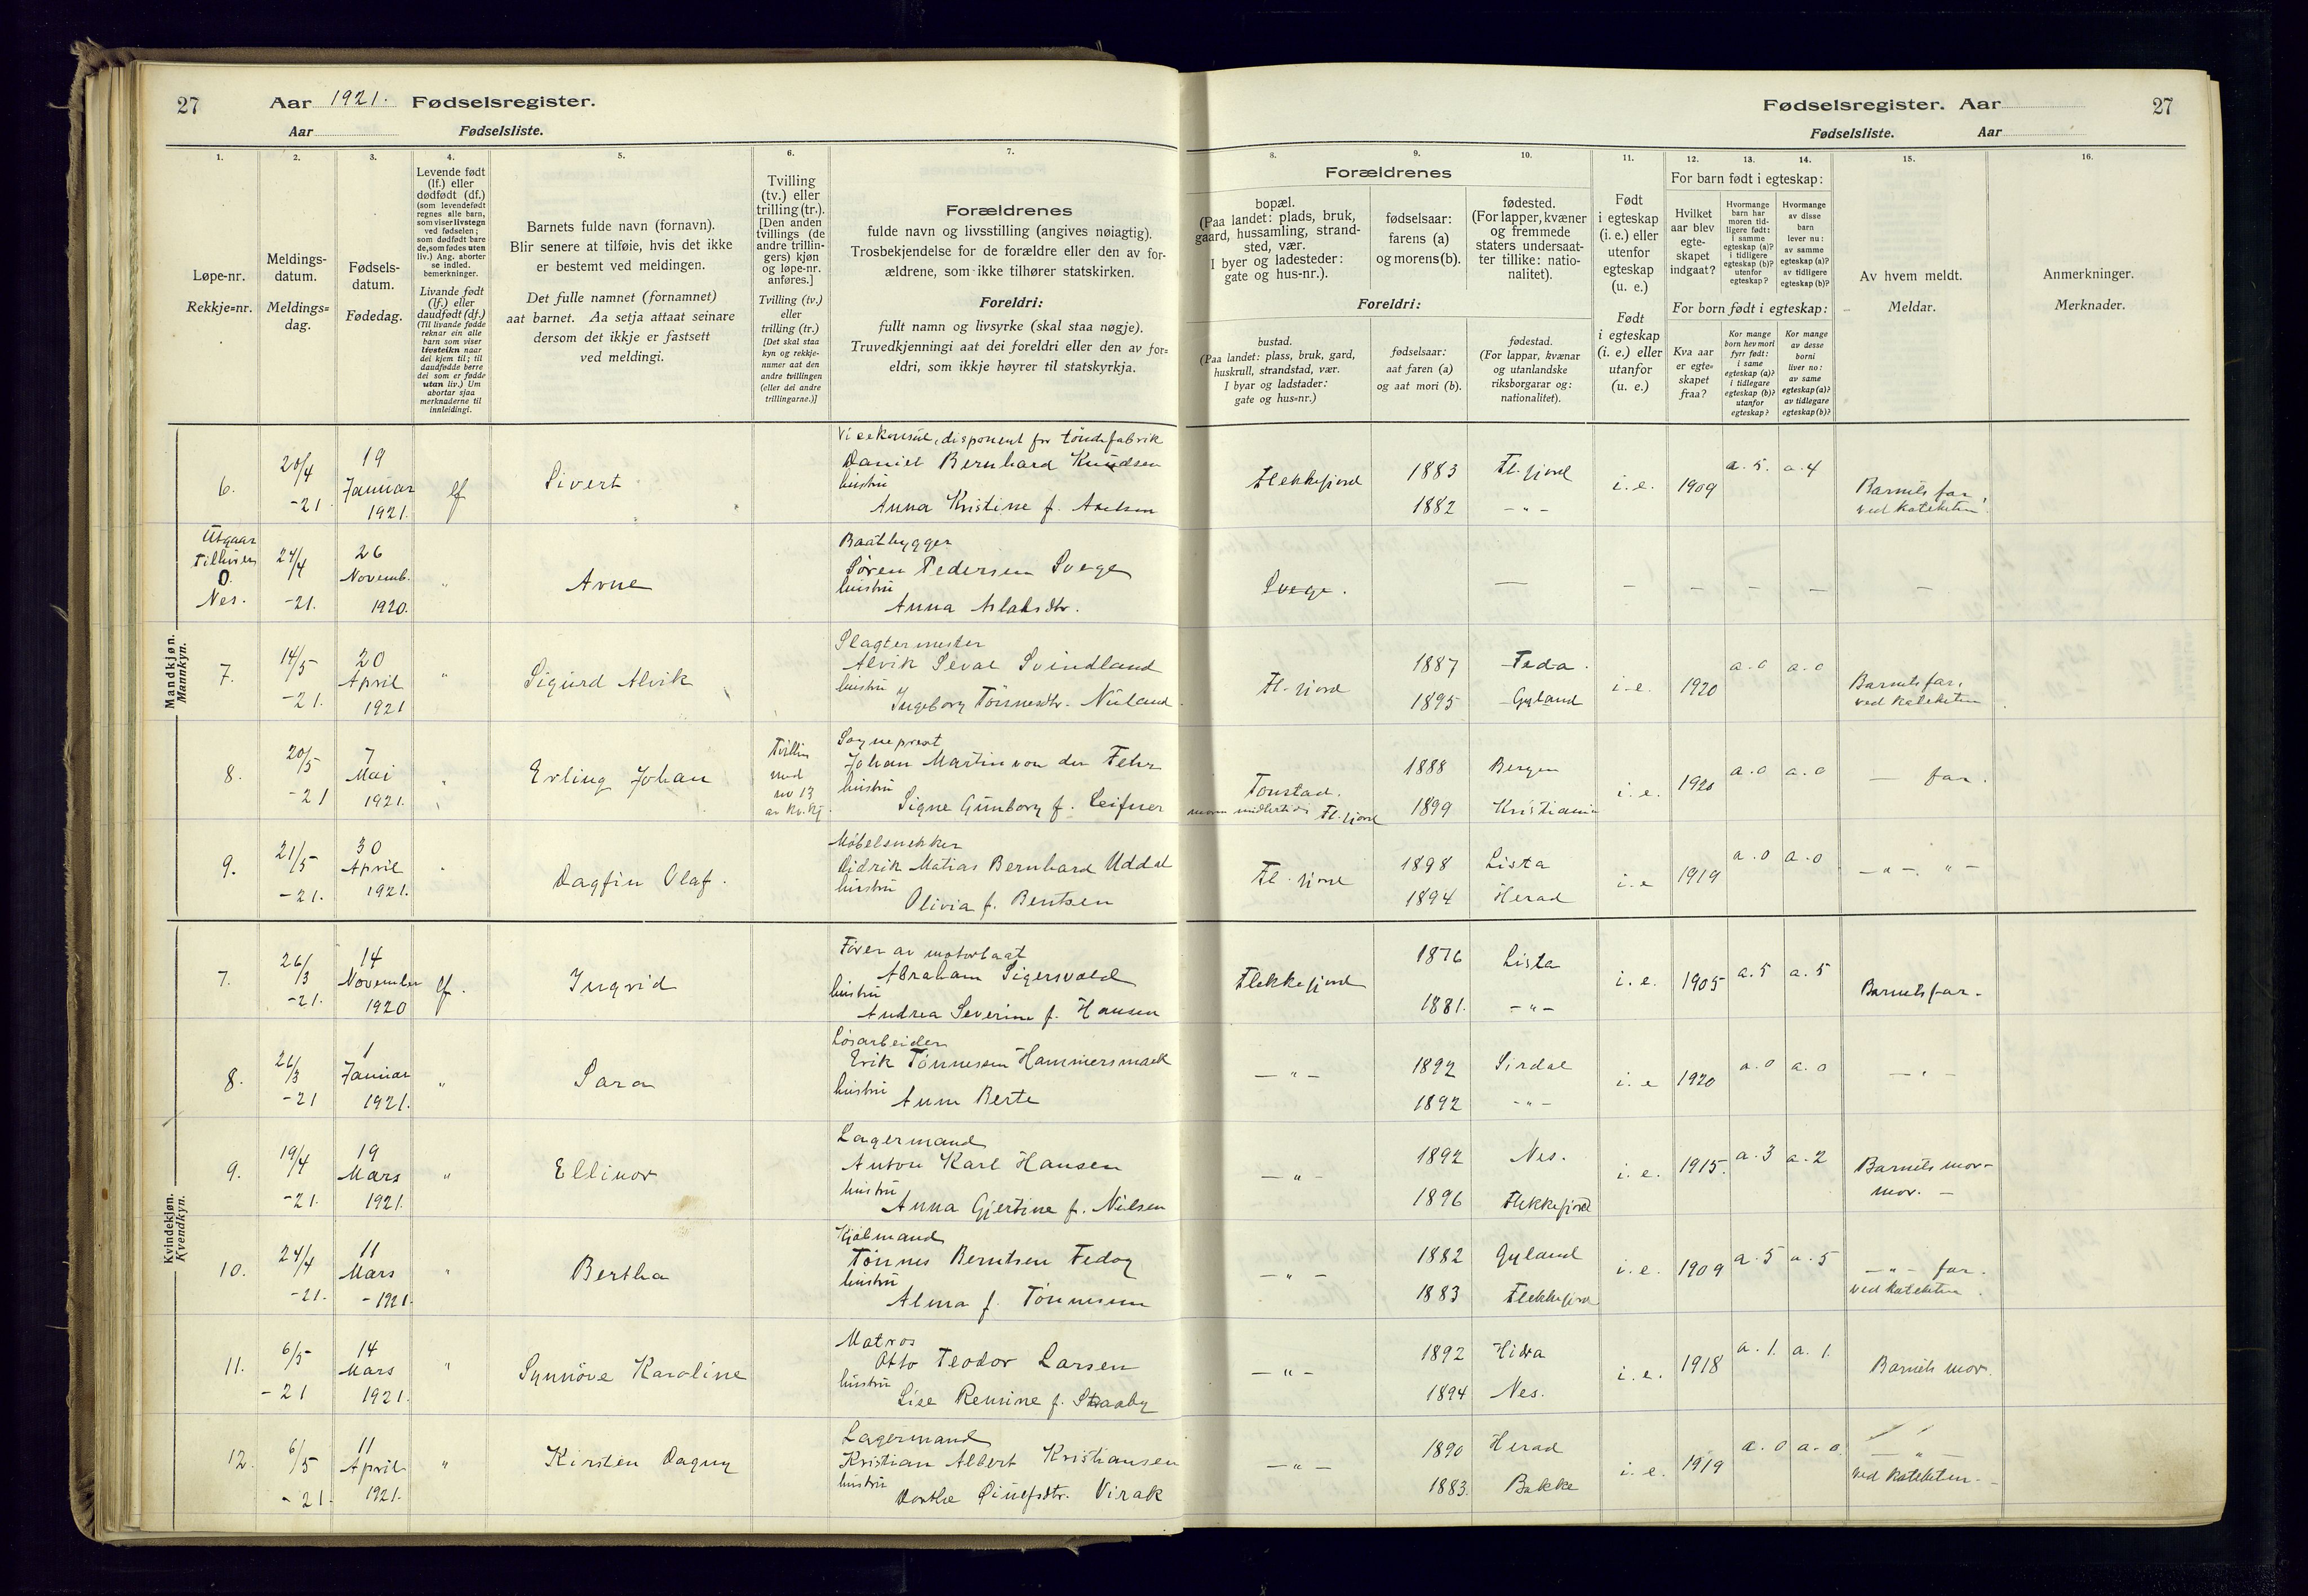 27 Aar 1921. Fødselsregister.
Aar Fødselsliste.
Fødselsregister. Aar 27
Fødselsliste. Aar
1. 2. 3. 4. 5. 6. 7. 8. 9. 10. 11. 12. 13. 14. 15. 16.
Løpe-nr.
Rekkje=nr.
Meldings-
datum.
Meldings=
dag.
Fødsels-
datum.
Fødedag.
Levende født
(lf.) eller
dødfødt (df.)
(som levendefødt
regnes alle barn,
som viser livstegn
ved fødselen;
som dødfødt bare
de, som fødes uten
liv.) Ang. aborter
se indled.
bemerkninger.
Livande født
(lf.) eller
daudfødt (df.)
(Til livande fødde
reknar ein alle
barn som viser
livsteikn naar
dei kjem til; til
daudfødde berre
dei som er fødde
utan liv.) Um
abortar sjaa
merknaderne til
innleidingi.
Barnets fulde navn (fornavn).
Blir senere at tilføie, hvis det ikke
er bestemt ved meldingen.
Det fulle namnet (fornamnet)
aat barnet. Aa setja attaat seinare
dersom det ikkje er fastsett
ved meldingi.
Tvilling
(tv.) eller
trilling (tr.).
[Den anden
tvillings (de
andre trillin-
gers) kjøn
og løpe-nr.
anføres.]
Tvilling (tv.)
eller
trilling (tr.)
[Det skal staa
kyn og rekkje-
numer aat den
andre tvillingen
(eller dei andre
trillingarne.)]
Forældrenes
fulde navn og livsstilling (angives nøiagtig).
Trosbekjendelse for de forældre eller den av for-
ældrene, som ikke tilhører statskirken.
Foreldri:
fullt namn og livsyrke (skal staa nøgje).
Truvedkjenningi aat dei foreldri eller den av for=
eldri, som ikkje høyrer til statskyrkja.
Forældrenes
bopæl.
(Paa landet: plads, bruk,
gaard, hussamling, strand-
sted, vær.
I byer og ladesteder:
gate og hus-nr.).
fødselsaar:
farens (a)
og morens (b).
fødested.
(For lapper, kvæner
og fremmede
staters undersaat-
ter tillike: natio-
nalitet).
Foreldri:
bustad.
(Paa landet: plass, bruk, gard,
huskrull, strandstad, vær.
I byar og ladstader:
gate og hus=nr.)
fødselsaar:
aat faren (a)
og aat mori (b).
fødestad.
(For lappar, kvænar
og utanlandske
riksborgarar og:
nationalitet).
Født
i egteskap
(i. e.) eller
utenfor
egteskap
(u. e.)
Født
i egteskap
(i. e.) eller
utanfor
(u. e.)
For barn født i egteskap:
Hvilket
aar blev
egte-
skapet
indgaat?
Hvormange
barn har
moren tid-
ligere født:
i samme
egteskap (a)?
i tidligere
egteskap (b)?
utenfor
egteskap?
Hvormange
av disse
barn
lever nu:
av samme
egteskap (a)?
av tidligere
egteskap (b)?
For born født i egteskap:
Kva aar
er egte=
skapet
fraa?
Kor mange
born hev mori
fyrr født:
i same
egteskap (a)?
i tidlegare
egteskap (b)?
utanfor
egteskap?
Kor mange
av desse
borni
liver no:
av same
egteskap (a)?
av tidlegare
egteskap (b)?
Av hvem meldt.
Meldar.
Anmerkninger.
Merknader.
Mandkjøn.
Mannkyn.
6. 20/4 -21 19 Januar 1921. lf Sivert
Visekonsul, disponent for töndefabrik
Daniel Bernhard Knudsen
hustru
Anna Kristine f. Axelsen
Flekkefjord 1883 Fl.fjord
1882 -"-
i. e. 1909 a. 5. a. 4
Barnets far,
ved kateketen.
Utgaar
Tilhører
O.
Nes.
24/4 -21. 26 Novemb. 1920. " Arne
Baatbygger
Sören Pedersen Svege
hustru
Anna Aslaksdtr.
Svege. — — — — — —
7. 14/5 -21. 20 April 1921 " Sigurd Alvik
Slagtermester
Alvik Seval Svindland
hustru
Ingeborg Tönnesdtr. Nuland
Fl.fjord 1887 Feda.
1895 Gyland
i. e. 1920 a. 0 a. 0
Barnets far,
ved kateketen
8. 20/5 -21 7 Mai 1921. " Erling Johan
Tvilling
med
nr 13
av kv.kj.
Sogneprest
Johan Martin von der Fehr
hustru
Signe Gunborg f. Leifner
Tonstad.
moren midlertidi Fl.fjord
1888 Bergen
1899 Kristiania
i. e. 1920 a. 0 a. 0 — far.
9. 21/5 -21. 30 April 1921. " Dagfin Olaf.
Möbelsnekker
Didrik Matias Bernhard Uddal
hustru
Olivia f. Bentsen
Fl.fjord 1898 Lista
1894 Herad
i. e 1919 a. 0 a. 0 —"— "—
Kvindekjøn.
Kvendkyn.
7. 26/3 -21. 14 November 1920 lf. Ingrid
Förer av motorbaat
Abraham Sigersvold
hustru
Andrea Severine f. Hansen
Flekkefjord 1876 Lista
1881. -"-
i. e. 1905 a. 5 a. 5 Barnets far.
8. 26/3 -21 1 Januar 1921. " Sara
Lösarbeider
Erik Tönnesen Hammersmark
hustru
Anne Berte
—"— 1892 Sirdal
1892 -"-
i. e 1920 a. 0 a. 0 —"—
9. 19/4 -21. 19 Mars 1921. " Ellinor
Lagermand
Anton Karl Hansen
hustru
Anna Gjertine f. Nielsen
—"— 1892 Nes.
1896 Flekkefjord
i. e. 1915. a. 3 a. 2
Barnets mor-
mor. —
10. 24/4 -21. 11 Mars -1921. " Bertha
Kjölmand
Tönnes Berntsen Fedog
hustru
Alma f. Tönnesen
—"— 1882 Gyland
1883 Flekkefjord
i. e. 1909 a. 5 a. 5
—"— far.
ved kateketen.
11. 6/5 -21 14 Mars 1921. " Synnöve Karoline
Matros
Otto Teodor Larsen
hustru
Lise Remine f. Straaby
—"— 1892 Hidra
1894 Nes.
i. e. 1918 a. 1. a. 1. Barnets mor.
12. 6/5 -21. 11 April 1921. " Kirsten Dagny
Lagermand
Kristian Albert Kristiansen
hustru
Dorthe Öiulfsdtr. Virak
—"— 1890 Herad
1883. Bakke
i. e. 1919 a. 0 a. 0.
—"—
ved kateketen.